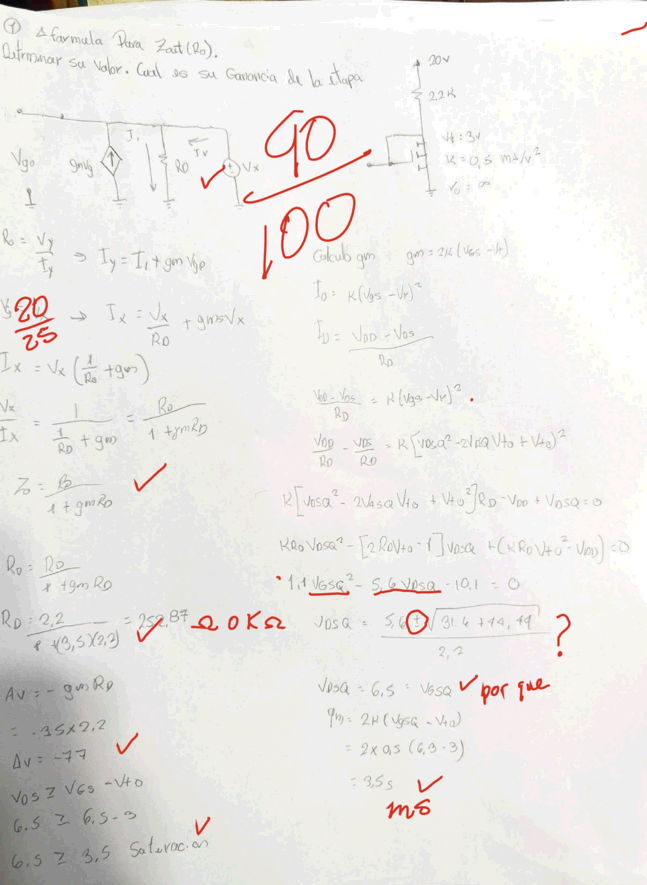 ① Δ formula Para Zout (Ro).
Determinar su valor. Cual es su Ganancia de la etapa
20v
2,2K
Vt = 3v
K = 0,5 ms/v²
ro = ∞
Vgo
gmVg
I₁
RD
Ix
Vx
90/100
Ro = Vy/Iy ⇒ Iy = I₁ + gm Vgo
20/25
⇒ Ix = Vx/RD + gmsVx
Ix = Vx (1/RD + gm)
Vx/Ix = 1/(1/RD + gm) = RD/(1 + gmRD)
Zo = RD/(1 + gmRD)
Ro = RD/(1 + gm RD)
RD = 2,2/(1 + (3,5)(2,2)) = 252,87 Ω O KΩ
Av = - gm RD
= .35 x 2,2
Av = -77
VDS ≥ VGS - Vto
6.5 ≥ 6.5 - 3
6.5 ≥ 3,5 Saturacion
Calculo gm gm = 2K (VGS - Vt)
ID = K(VGS - VT)²
ID = (VDD - VDS)/RD
(VDD - VDS)/RD = K(VGS - VT)²
VDD/RD - VDS/RD = K[VDSQ² - 2VDSQ Vto + Vto)²
K[VDSQ² - 2VGSQ Vto + Vto²]RD - VDD + VDSQ = 0
KRD VDSQ² - [2RDVto - 1] VDSQ + (KRD Vto² - VDD) = 0
1,1 VGSQ² - 5,6 VDSQ - 10.1 = 0
VDSQ = (5,6 ± √(31.6 + 44,44))/2,2 ?
VDSQ = 6,5 = VGSQ por que
gm = 2K(VGSQ - Vto)
= 2 x 0,5 (6,5 - 3)
= 3,5s
ms